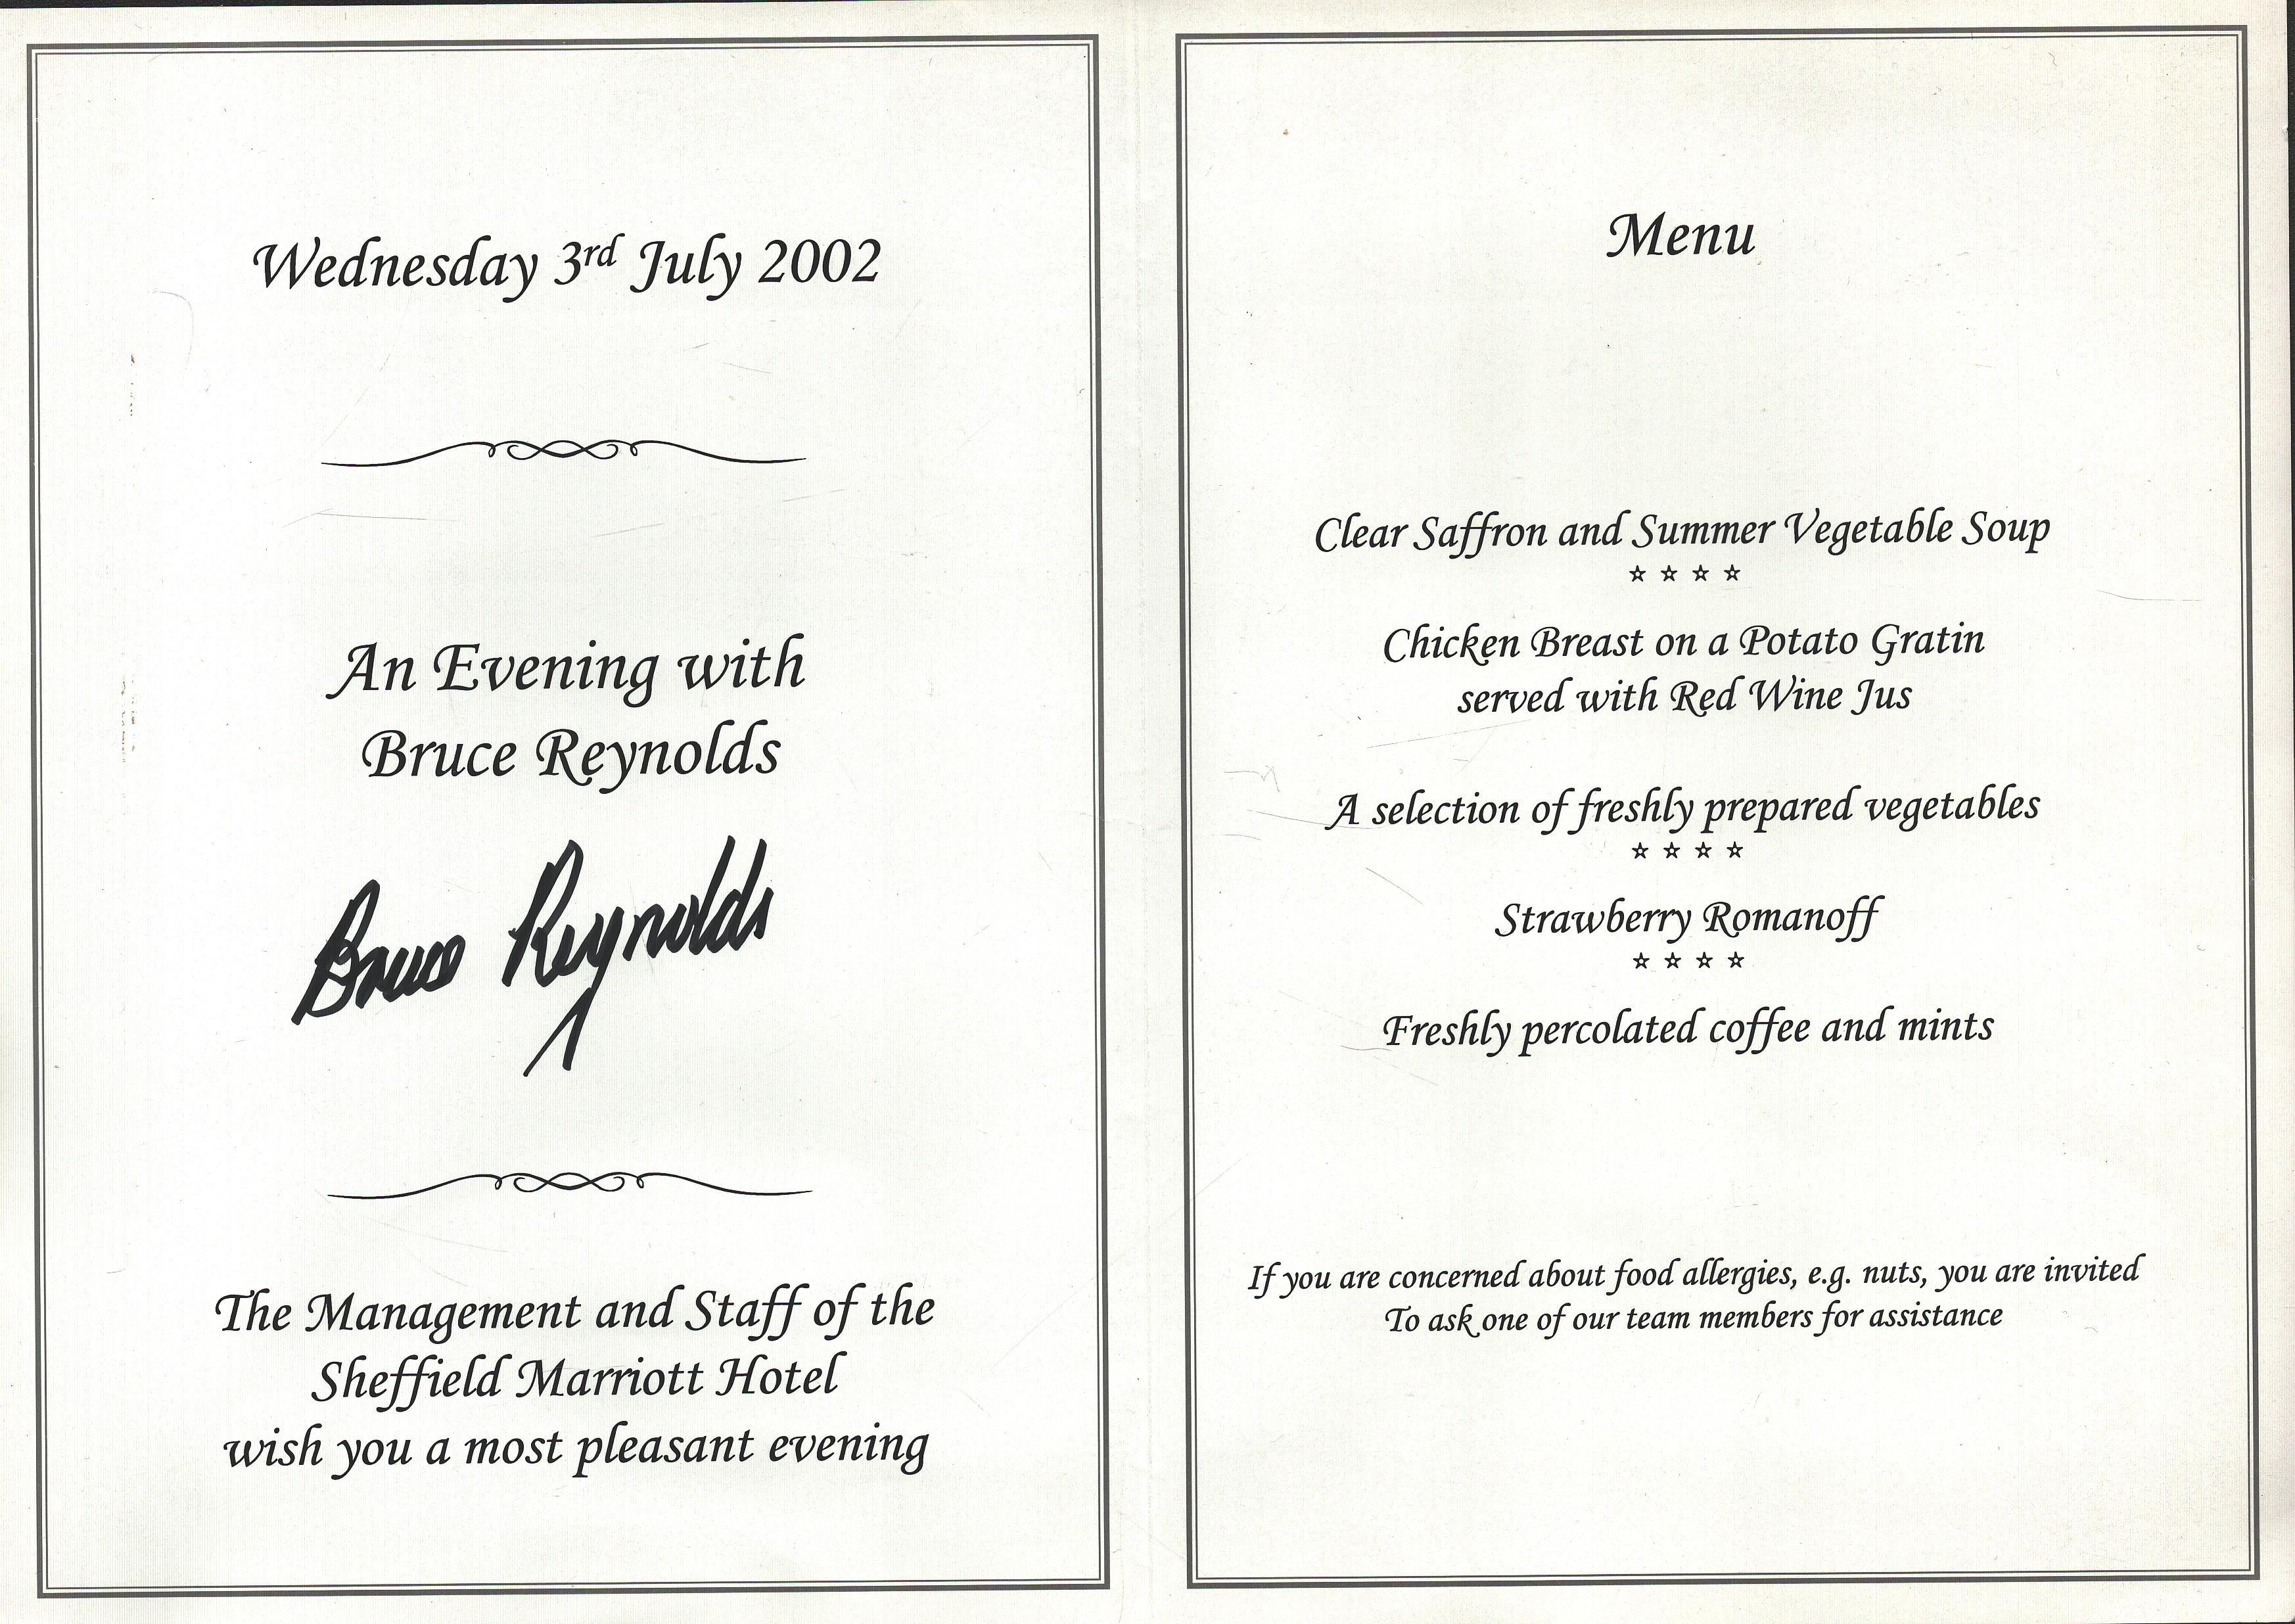 Wednesday 3rd July 2002
An Evening with
Bruce Reynolds
Bruce Reynolds
The Management and Staff of the
Sheffield Marriott Hotel
wish you a most pleasant evening
Menu
Clear Saffron and Summer Vegetable Soup
☆ ☆ ☆ ☆
Chicken Breast on a Potato Gratin
served with Red Wine Jus
A selection of freshly prepared vegetables
☆ ☆ ☆ ☆
Strawberry Romanoff
☆ ☆ ☆ ☆
Freshly percolated coffee and mints
If you are concerned about food allergies, e.g. nuts, you are invited
To ask one of our team members for assistance